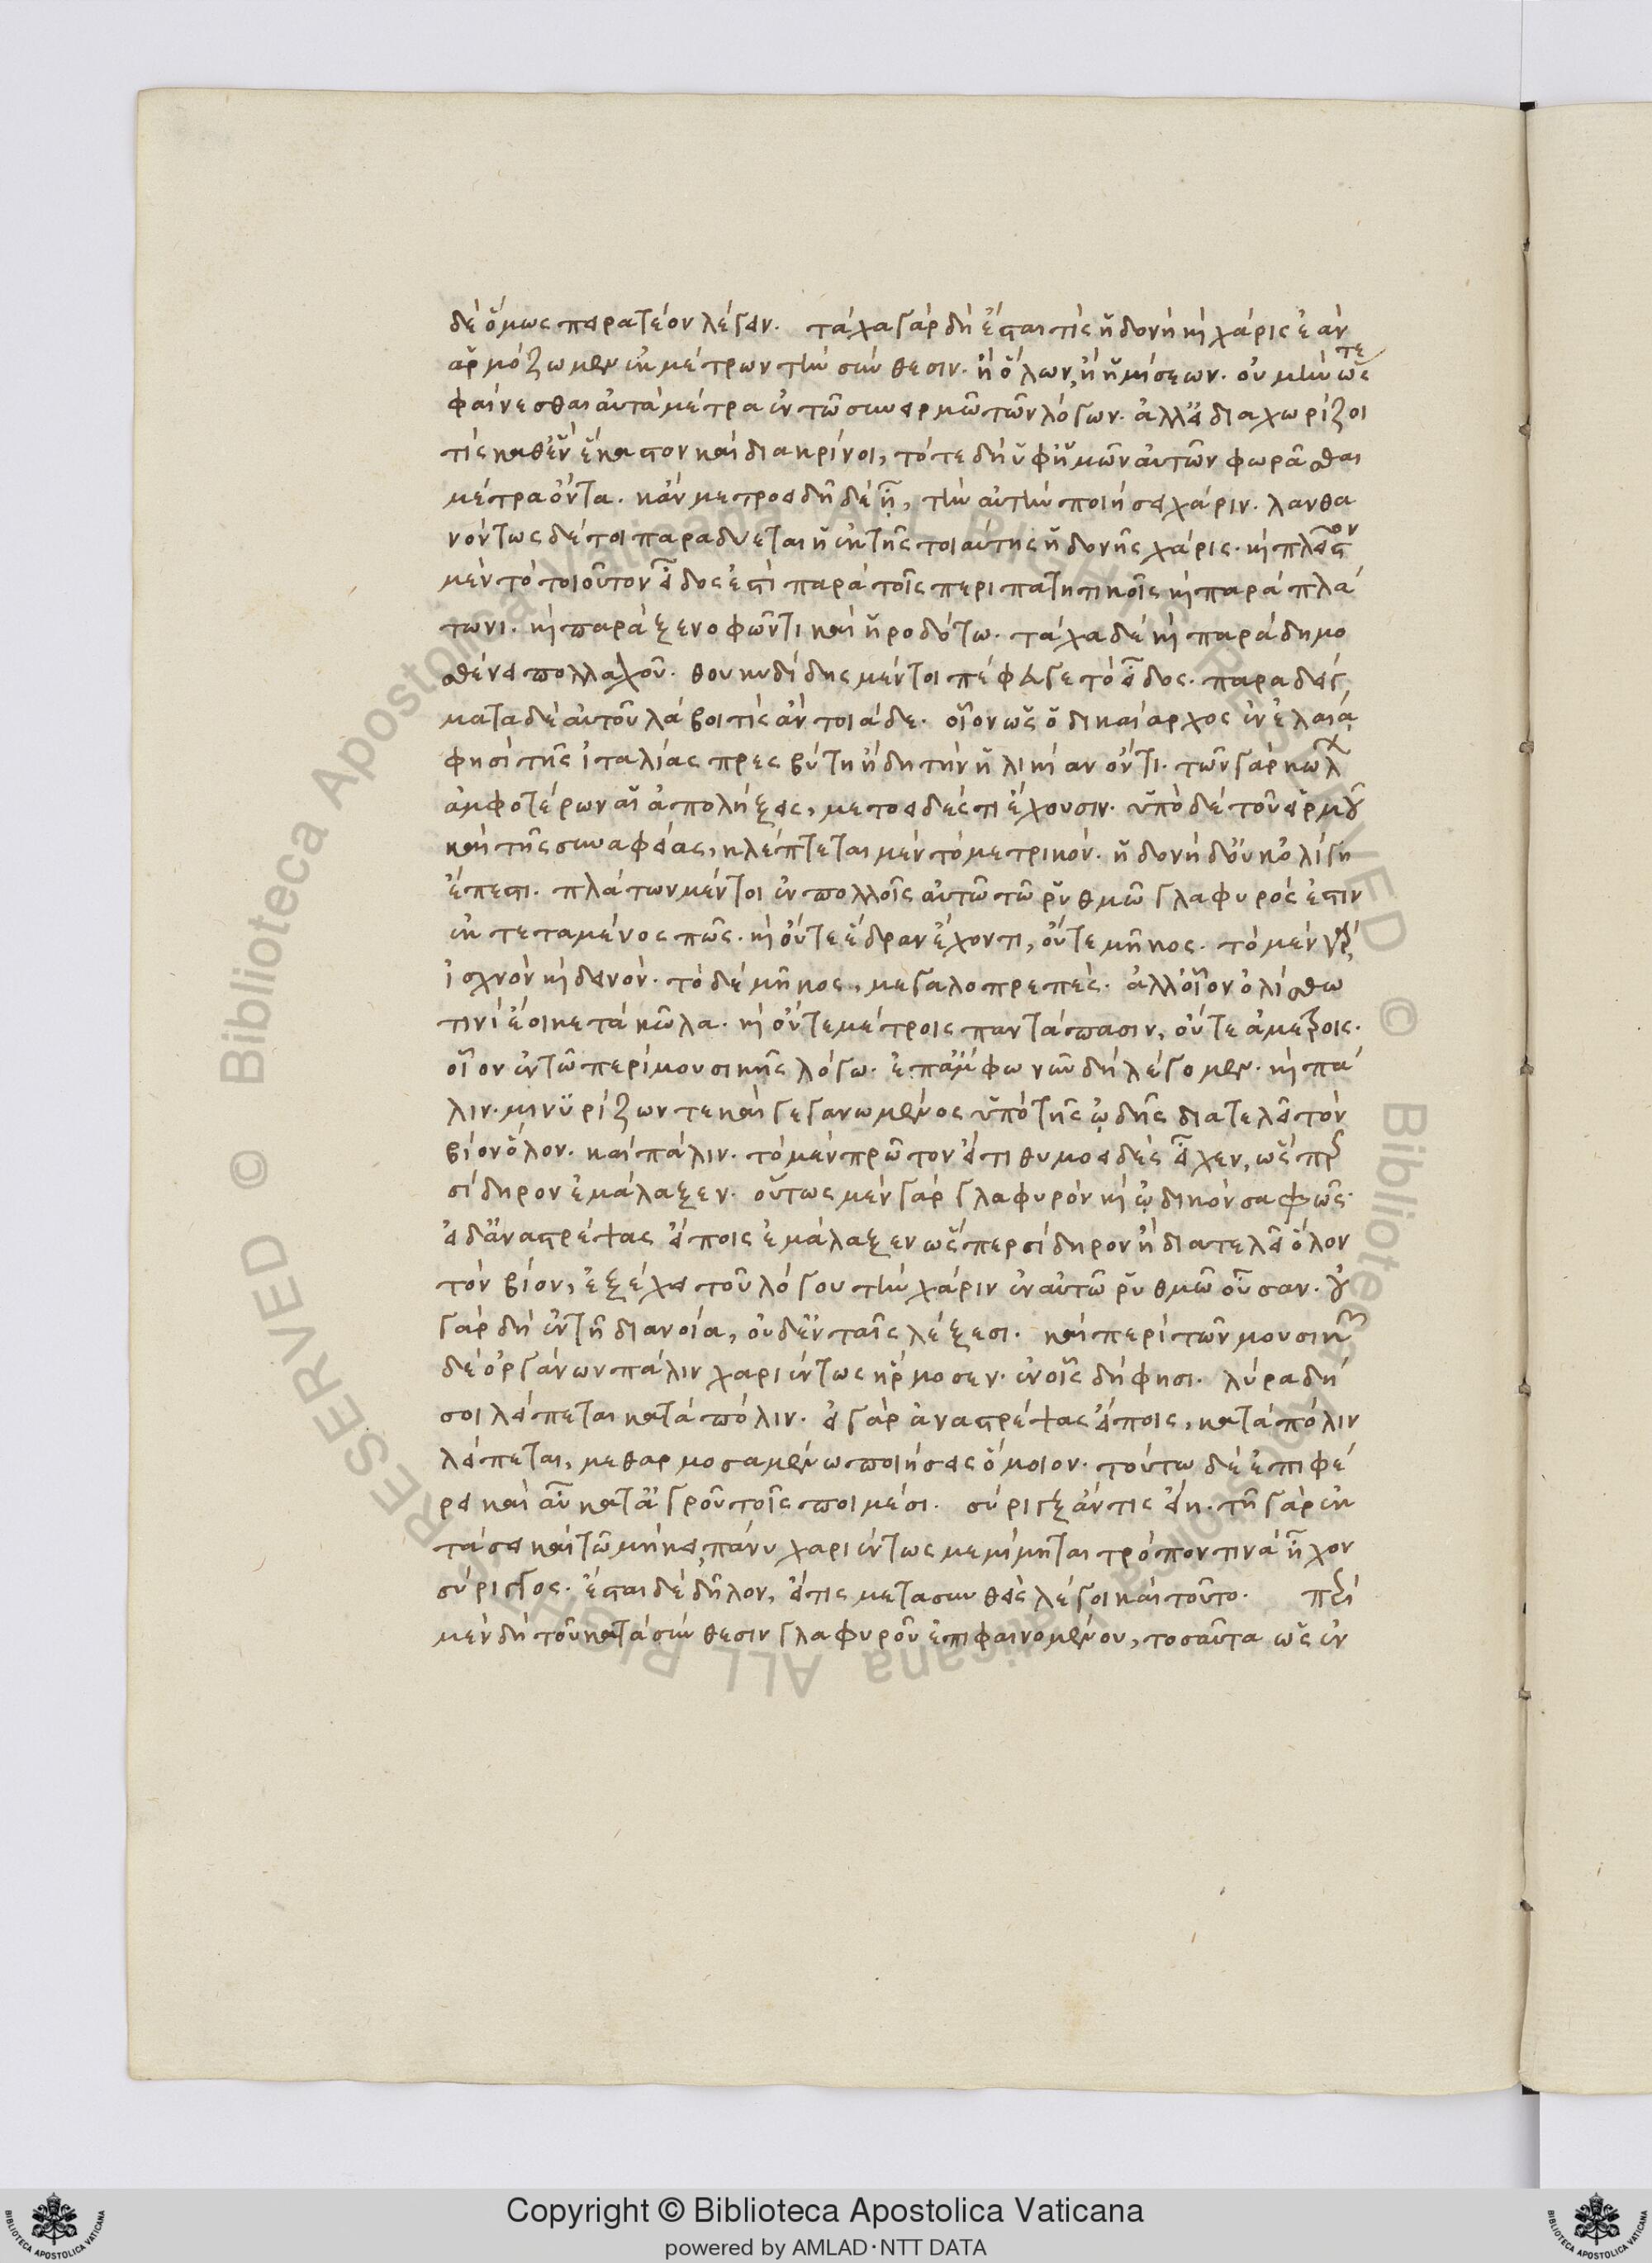 δὲ ὅμως πειρατέον λέγειν. τάχα γὰρ δὴ ἔσται τίς ἡδονὴ κὶ χάρις ἐὰν
ἁρμόζωμεν ἐκ μέτρων τὴν σύνθεσιν. ἢ ὅλων, ἢ ἡμίσεων. οὐ μὴν ὥςτε
φαίνεσθαι αὐτὰ μέτρα ἐν τῶ συνειρμῶ τῶν λόγων. ἀλλ' εἰ διαχωρίζοι
τίς καθ' ἓν ἕκαστον καὶ διακρίνοι, τότε δὴ ὑφ' ἡμῶν αὐτῶν φωρᾶσθαι
μέτρα ὄντα. κἂν μετροειδῆ δὲ ᾖ, τὴν αὐτὴν ποιήσει χάριν. λανθα
νόντως δέ τοι παραδύεται ἡ ἐκ τῆς τοιαύτης ἡδονῆς χάρις. κὶ πλεῖστον
μὲν τὸ τοιοῦτον εἶδος ἐστὶ παρὰ τοῖς περιπατητικοῖς κὶ παρὰ πλά
τωνι. κὶ παρὰ ξενοφῶντι καὶ ἡροδότω. τάχα δὲ κὶ παρὰ δημο
σθένει πολλαχοῦ. θουκυδίδης μέντοι πέφευγε τὸ εἶδος. παραδείγ
ματα δὲ αὐτοῦ λάβοι τίς ἂν τοιάδε. οἷον ὡς ὁ δικαίαρχος ἐν ἐλαίᾳ
φησὶ τῆς ἰταλίας πρεσβύτη ἤδη τὴν ἡλικίαν ὄντι. τῶν γὰρ κώλ
ἀμφοτέρων αἱ ἀπολήξεις, μετοειδές τι ἔχουσιν. ὑπὸ δὲ τοῦ εἱρμοῦ
καὶ τῆς συναφείας, κλέπτεται μὲν τὸ μετρικόν. ἡδονὴ δ' οὐκ ὀλίγη
ἔπεστι. πλάτων μέντοι ἐν πολλοῖς αὐτῶ τῶ ῥυθμῶ γλαφυρός ἐστιν
ἐκτεταμένος πῶς. κὶ οὔτε ἕδραν ἔχοντι, οὔτε μῆκος. τὸ μὲν γὰρ
ἰσχνὸν κὶ δεινόν. τὸ δὲ μῆκος, μεγαλοπρεπές. ἀλλ' οἷον ὀλίσθω
τινὶ ἔοικε τὰ κῶλα. κὶ οὔτε μέτροις παντάπασιν, οὔτε ἀμέτροις.
οἷον ἐν τῶ περὶ μουσικῆς λόγω. ἐπ' ἄμφω νῦν δὴ λέγομεν. κὶ πά
λιν. μινυρίζων τε καὶ γεγανωμένος ὑπὸ τῆς ᾠδῆς διατελεῖ τὸν
βίον ὅλον. καὶ πάλιν. τὸ μὲν πρῶτον εἴ τι θυμοειδὲς εἶχεν, ὥσπερ
σίδηρον ἐμάλαξεν. οὕτως μὲν γὰρ γλαφυρὸν κὶ ᾠδικὸν σαφῶς.
εἰ δ' ἀναστρέψας εἴποις ἐμάλαξεν ὥσπερ σίδηρον ἢ διατελεῖ ὅλον
τὸν βίον, ἐξέχει τοῦ λόγου τὴν χάριν ἐν αὐτῶ ῥυθμῶ οὖσαν. οὐ
γὰρ δὴ ἐν τῆ διανοία, οὐδ' ἐν ταῖς λέξεσι. καὶ περὶ τῶν μουσικῶν
δὲ ὀργάνων πάλιν χαριέντως ἥρμοσεν. ἐν οἷς δή φησι. λύρα δή
σοι λείπεται κατὰ πόλιν. εἰ γὰρ ἀναστρέψας εἴποις, κατὰ πόλιν
λείπεται, μεθαρμοσαμένω ποιήσεις ὅμοιον. τούτω δὲ ἐπιφέ
ρει καὶ αὖ κατ' ἀγροῦ τοῖς ποιμέσι. σύριγξ ἄν τις εἴη. τῆ γὰρ ἐκ
τάσει καὶ τῶ μήκει, πάνυ χαριέντως μεμίμηται τρόπον τινὰ ἦχον
σύριγγος. ἔσται δὲ δῆλον, εἴ τις μετασυνθεὶς λέγοι καὶ τοῦτο. περὶ
μὲν δὴ τοῦ κατὰ σύνθεσιν γλαφυροῦ ἐπιφαινομένου, τοσαῦτα ὡς ἐν
© Biblioteca Apostolica Vaticana ALL RIGHTS RESERVED
Copyright © Biblioteca Apostolica Vaticana
powered by AMLAD·NTT DATA
BIBLIOTECA APOSTOLICA VATICANA
BIBLIOTECA APOSTOLICA VATICANA